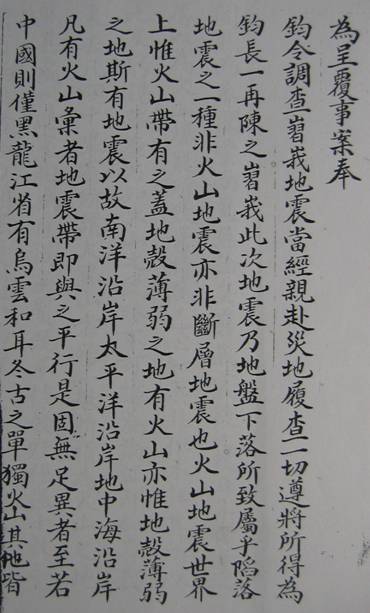 為呈覆事案奉
鈞令調查嶍峩地震當經親赴災地履查一切遵將所得為
鈞長一再陳之嶍峩此次地震乃地盤下落所致屬乎陷落
地震之一種非火山地震亦非斷層地震也火山地震世界
上惟火山帶有之蓋地殼薄弱之地有火山亦惟地殼薄弱
之地斯有地震以故南洋沿岸太平洋沿岸地中海沿岸
凡有火山彙者地震帶即與之平行是固無足異者至若
中國則僅黑龍江省有烏雲和耳冬古之單獨火山其他皆